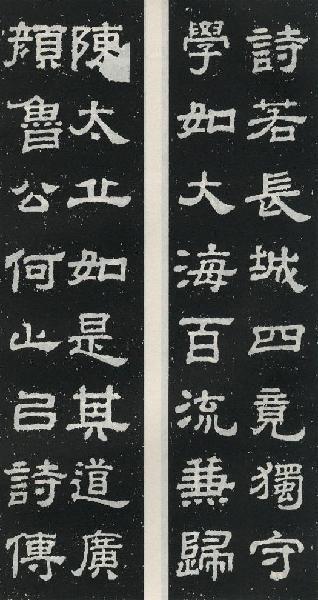 詩若長城四竟獨守
學如大海百流兼歸
陳太丘如是其道廣
顔魯公何止㠯詩傳